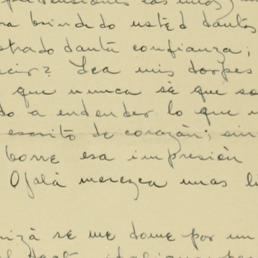 ha brindado usted tantos
strado tanta confianza;
cir? Lea mis torpes
que nunca sé que so
do a entender lo que
escrito de corazón; sin
borre esa impresión
Ojalá merezca unas l
nizá se me tome por un